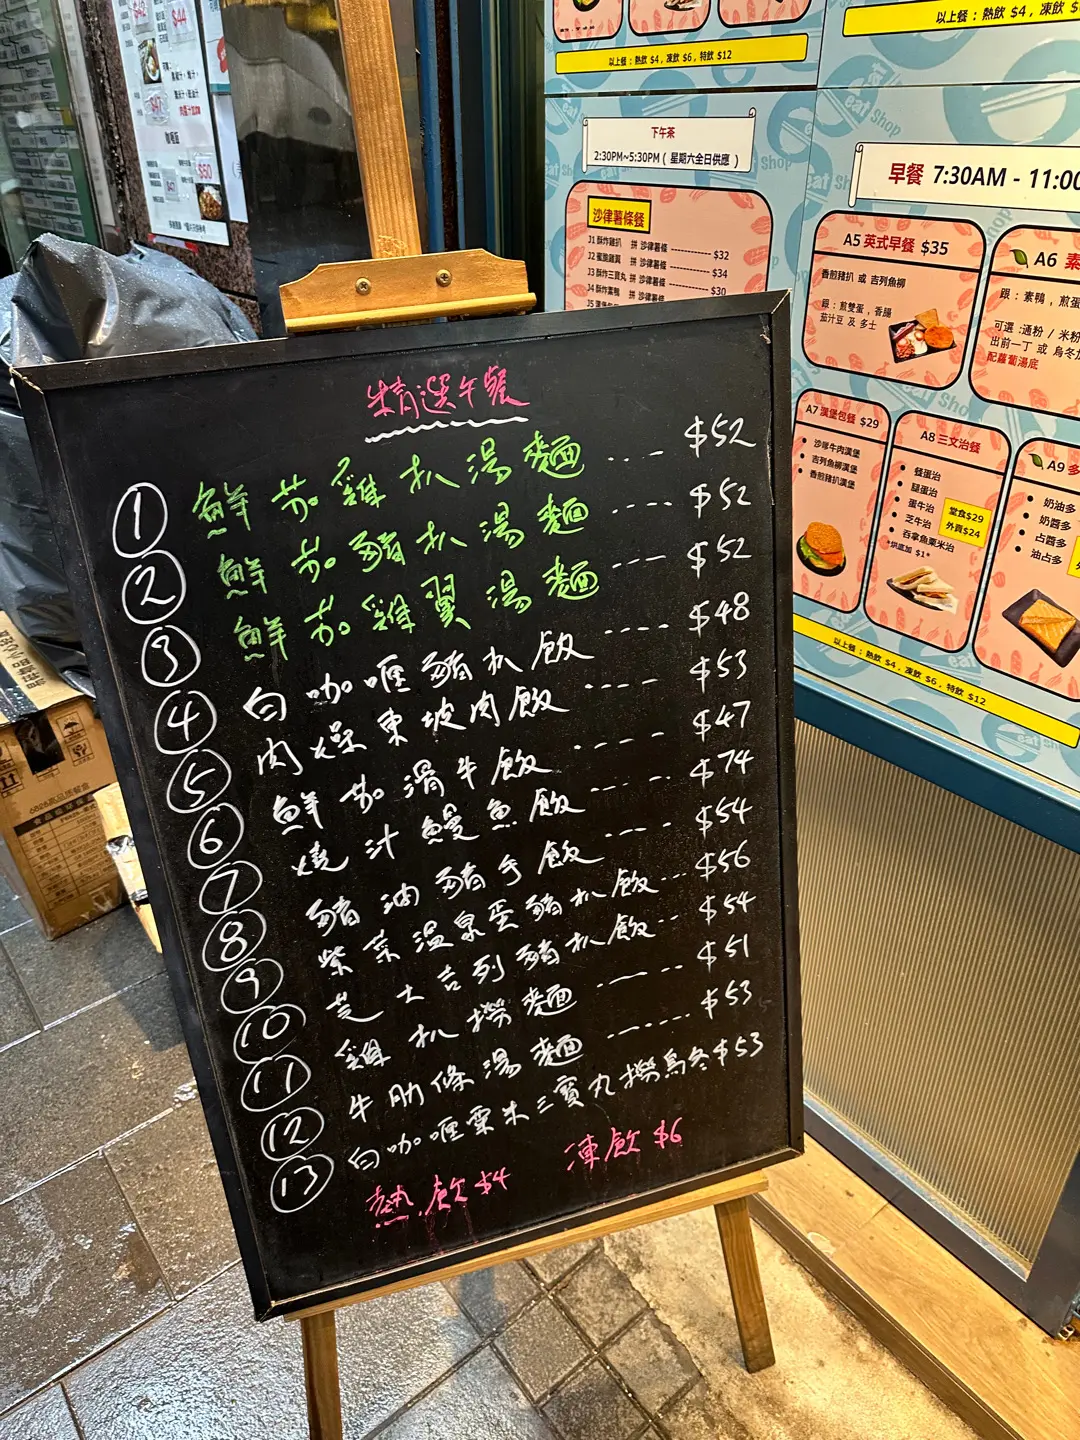 精選午餐
① 鮮茄雞扒湯麵 .... $52
② 鮮茄豬扒湯麵 .... $52
③ 鮮茄雞翼湯麵 .... $52
④ 白咖喱豬扒飯 .... $48
⑤ 肉燥東坡肉飯 .... $53
⑥ 鮮茄滑牛飯 .... $47
⑦ 燒汁鰻魚飯 .... $74
⑧ 豬油豬手飯 .... $54
⑨ 紫菜溫泉蛋豬扒飯 ... $56
⑩ 芝士吉列豬扒飯 .. $54
⑪ 雞扒撈麵 ...... $51
⑫ 牛肋條湯麵 ...... $53
⑬ 白咖喱粟米三寶丸撈烏冬 $53
熱飲 $4 凍飲 $6
以上餐 : 熱飲 $4 , 凍飲 $6 , 特飲 $12
下午茶
2:30PM~5:30PM ( 星期六全日供應 )
沙律薯條餐
J1 酥炸雞扒 拼 沙律薯條 $32
J2 蜜脆雞翼 拼 沙律薯條 $34
J3 酥炸三寶丸 拼 沙律薯條 $30
J4 酥炸素鴨 拼 沙律薯條
以上餐 : 熱飲 $4 , 凍飲
早餐 7:30AM - 11:00
A5 英式早餐 $35
香煎雞扒 或 吉列魚柳
跟 : 煎雙蛋 , 香腸
茄汁豆 及 多士
A6 素
跟 : 素鴨 , 煎蛋
可選 :通粉 / 米粉
出前一丁 或 烏冬
配蘿蔔湯底
A7 漢堡包餐 $29
沙嗲牛肉漢堡
吉列魚柳漢堡
香煎雞扒漢堡
A8 三文治餐
餐蛋治
腿蛋治
蛋牛治
芝牛治
吞拿魚粟米治
*烘底加 $1*
堂食$29
外賣$24
A9 多
奶油多
奶醬多
占醬多
油占多
以上餐 : 熱飲 $4 , 凍飲 $6 , 特飲 $12
eat Shop
$44
$47
$50